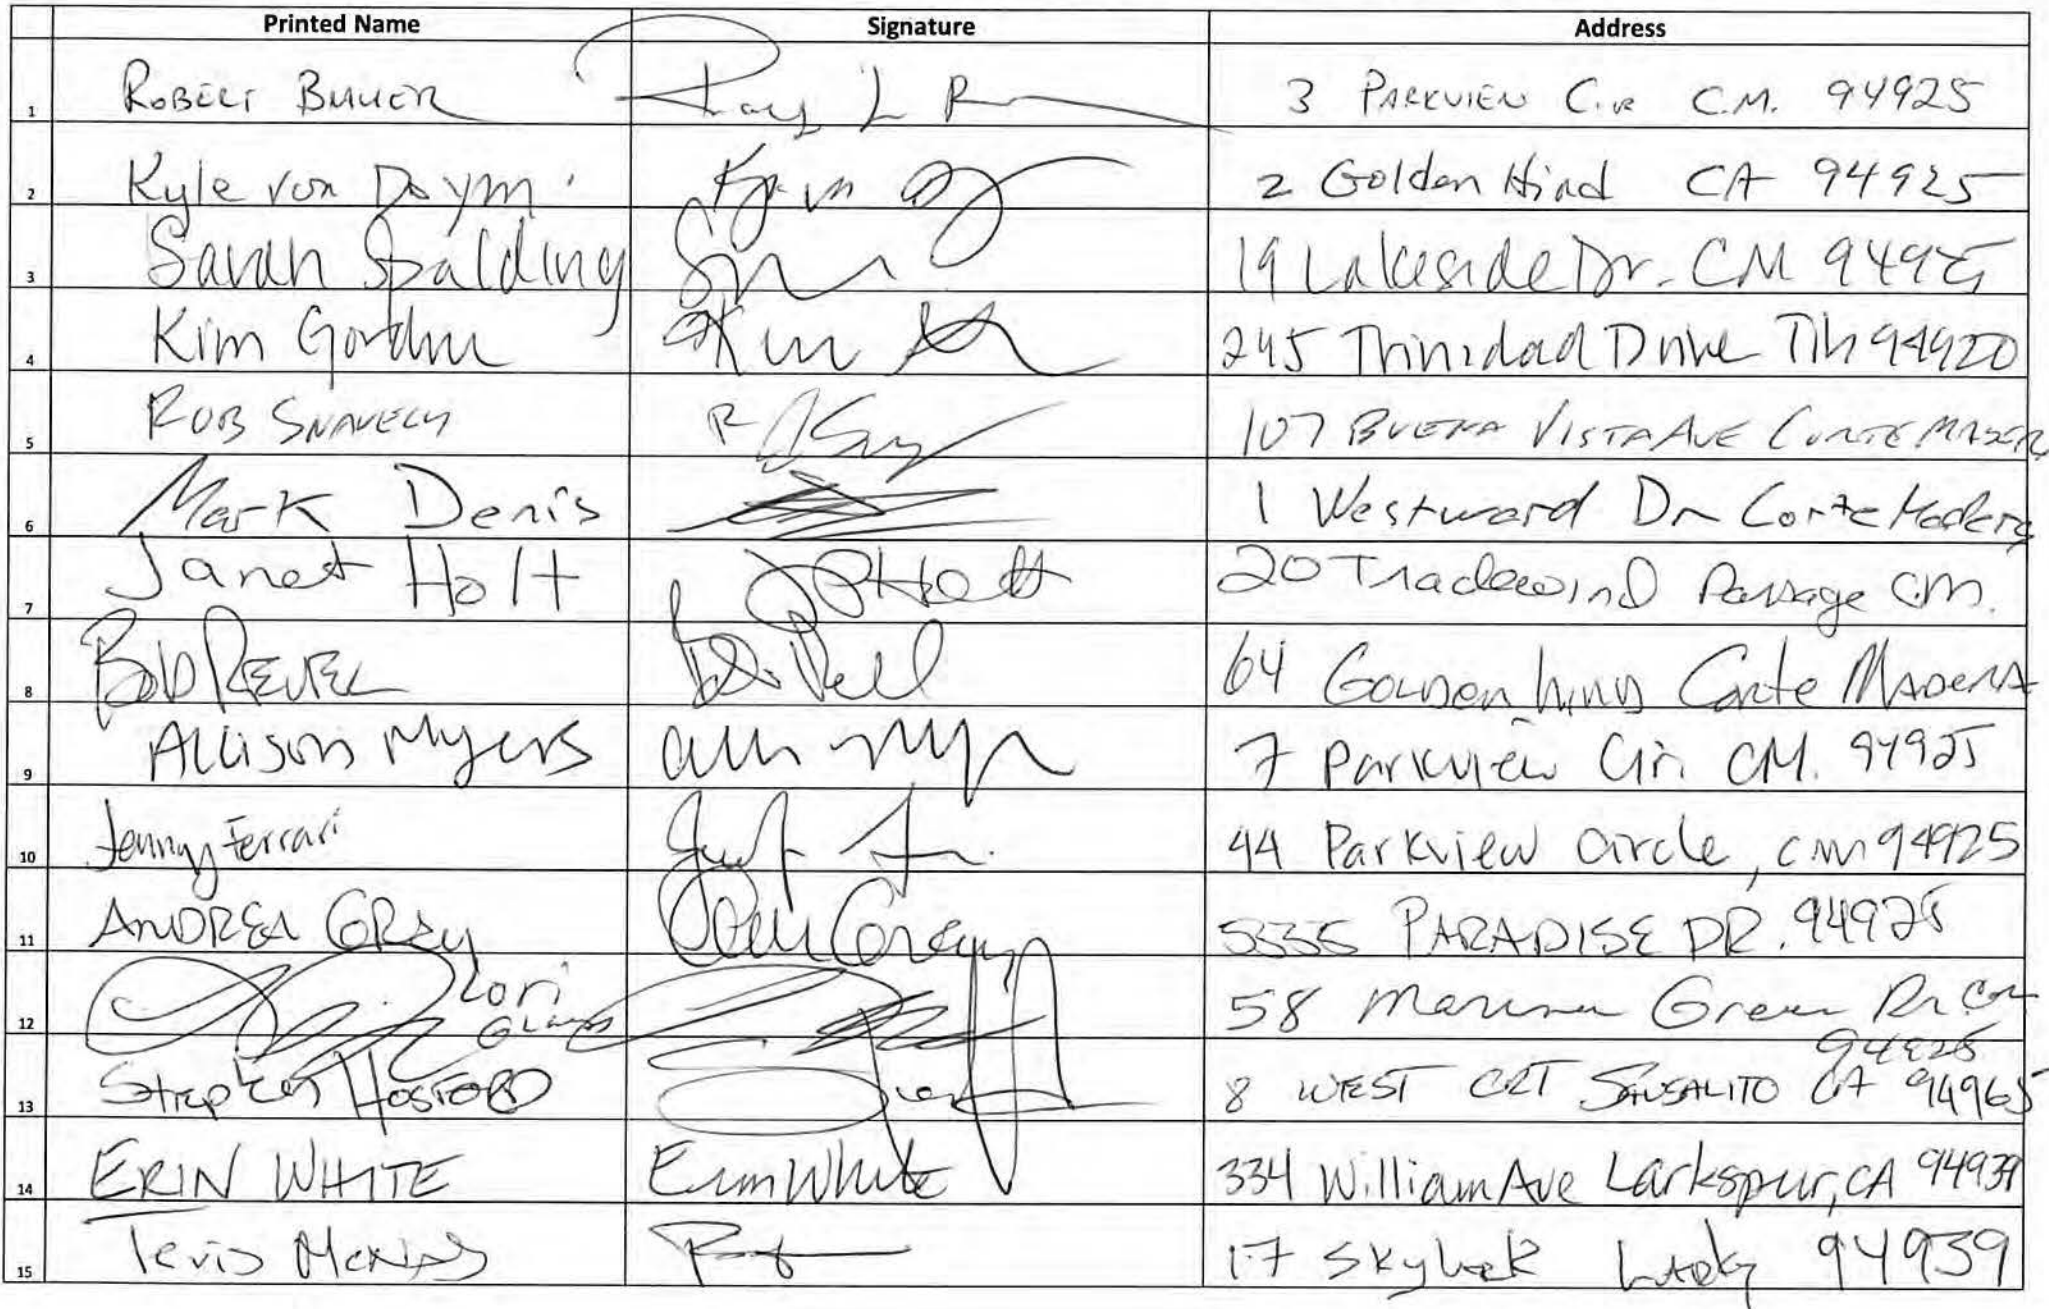 Printed Name Signature Address
1 ROBERT 3 PARKVIEW Cir C.M. 94925
2 Kyle von 2 Golden Hind CA 94925
3 Sarah Spalding 19 Lakeside Dr. CM 94925
4 Kim Gordon 245 Trinidad Drive Tib 94920
5 ROB SNAVELY 107 BUENA VISTA AVE CORTE MADERA
6 Mark Denis 1 Westward Dr Corte Madera
7 Janet Holt 20 Tradewind Passage C.M.
8 Bob REVEL 64 GOLDEN HIND Corte MADERA
9 Allison Myers 7 Parkview Cir. CM. 94925
10 Jenny Ferrari 44 Parkview Circle, CM 94925
11 ANDREA GRAY 5335 PARADISE DR. 94925
12 Lori 58 Marina Green Dr CM
94925
13 Stephen HOSFORD 8 WEST CRT SAUSALITO CA 94965
14 ERIN WHITE Erin White 334 William Ave Larkspur, CA 94939
15 Tevis 17 Skylark 94939